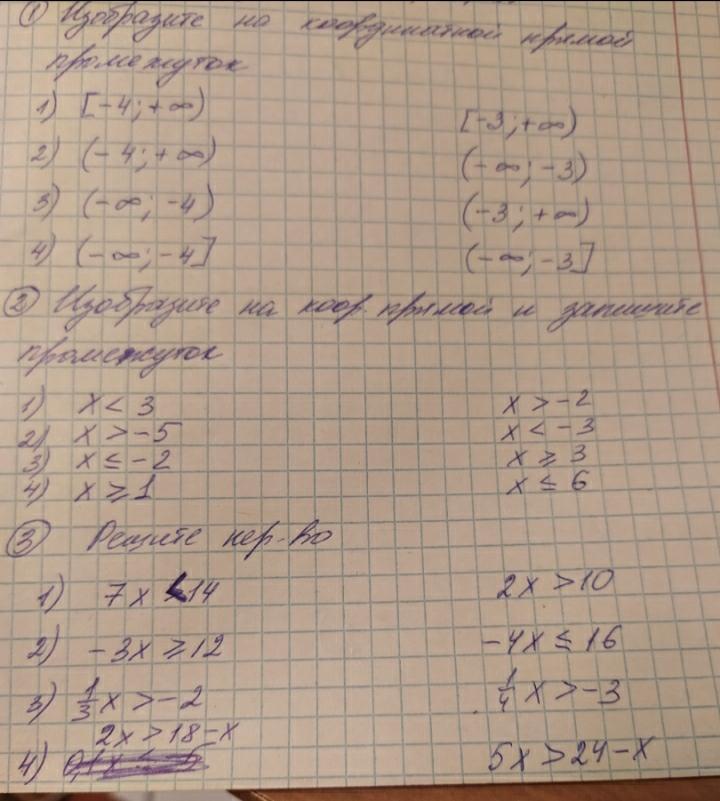 ① Изобразите на координатной прямой
промежуток
1) [-4; +∞) [-3; +∞)
2) (-4; +∞) (-∞; -3)
3) (-∞; -4) (-3; +∞)
4) (-∞; -4] (-∞; -3]
② Изобразите на коор. прямой и запишите
промежуток
1) x < 3 x > -2
2) x > -5 x < -3
3) x ≤ -2 x ≥ 3
4) x ≥ 1 x ≤ 6
③ Решите нер-во
1) 7x < 14 2x > 10
2) -3x ≥ 12 -4x ≤ 16
3) 1/3 x > -2 1/4 x > -3
4) 2x > 18 - x 5x > 24 - x